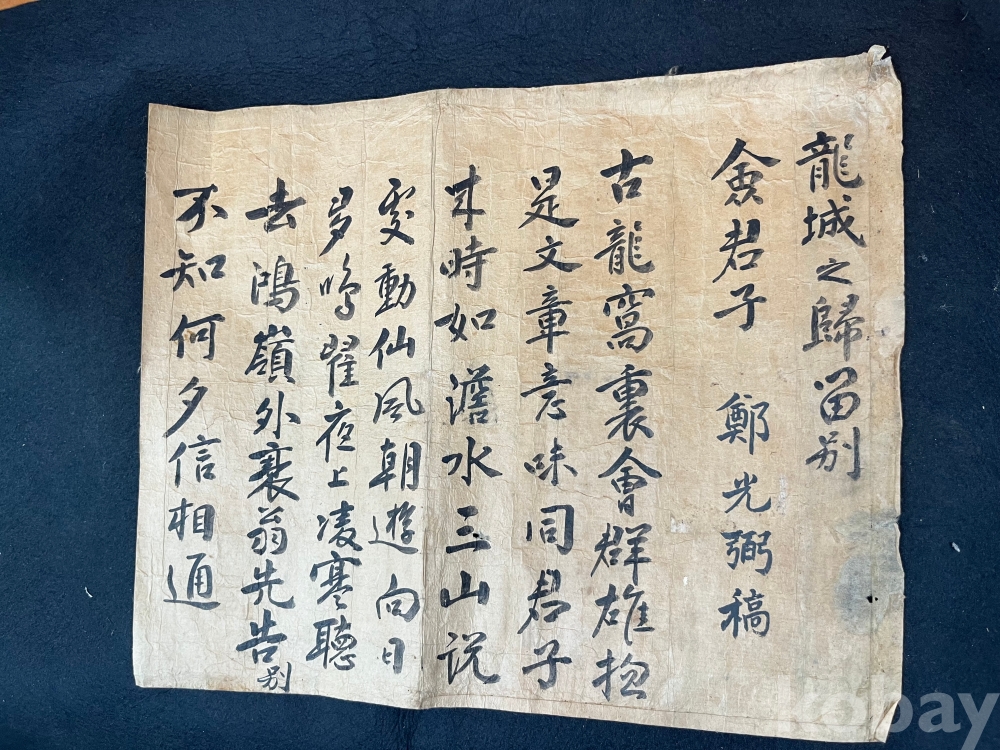 龍城之歸留別
僉君子 鄭光弼稿
古龍窩裏會群雄揔
是文章意味同君子
來時如澹水三山說
處動仙風朝遊向日
多鳴翟夜上凌寒聽
去鴻嶺外衰翁先告別
不知何夕信相通
kobay